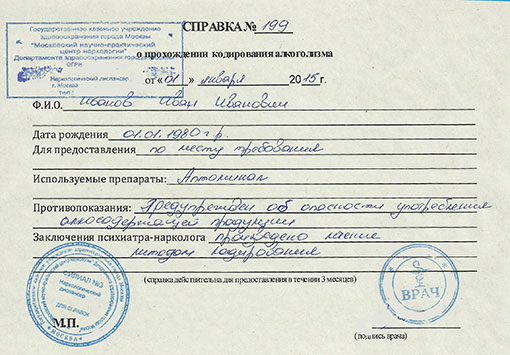 Государственное казенное учреждение
здравоохранения города Москвы
"Московский научно-практический
центр наркологии"
Департамента здравоохранения города
ОГРН
Наркологический диспансер
г. Москва
СПРАВКА № 199
о прохождении кодирования алкоголизма
от «01» января 2015 г.
Ф.И.О. Иванов Иван Иванович
Дата рождения 01.01.1980 г.р.
Для предоставления по месту требования
Используемые препараты:
Противопоказания: Предупрежден об опасности употребления
алкосодержащей продукции
Заключения психиатра-нарколога проведено
методом кодирования
(справка действительна для предоставления в течении 3 месяцев)
ФИЛИАЛ №3
Наркологический
диспансер
ДЛЯ СПРАВОК
МОСКВА
М.П.
ВРАЧ
(подпись врача)